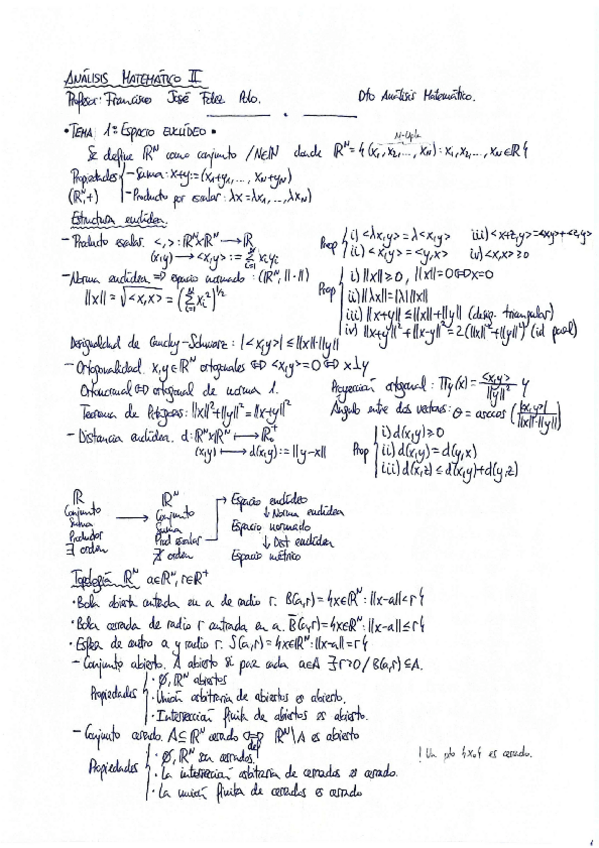 ANÁLISIS MATEMÁTICO II
Profesor: Francisco José Polo. Dto Análisis Matemático.
• TEMA 1: ESPACIO EUCLÍDEO •
N-upla
Se define ℝᴺ como conjunto /N∈ℕ donde ℝᴺ={(x₁,x₂,...,xN):x₁,x₂,...,xN∈ℝ}
Propiedades { - Suma: x+y:=(x₁+y₁,...,xN+yN)
(ℝᴺ,+) - Producto por escalar: λx=λx₁,...,λxN)
Estructura euclídea.
- Producto escalar. <,>:ℝᴺxℝᴺ→ℝ
(x,y)→<x,y>:=Σxᵢyᵢ
Prop { i) <λx,y>=λ<x,y> iii) <x+z,y>=<x,y>+<z,y>
ii) <x,y>=<y,x> iv) <x,x>≥0
- Norma euclídea ⇒ espacio normado: (ℝᴺ,||·||)
||x||=√<x,x>=(Σxᵢ²)^1/2
Prop { i) ||x||≥0, ||x||=0⇔x=0
ii) ||λx||=|λ|||x||
iii) ||x+y||≤||x||+||y|| (desig. triangular)
iv) ||x+y||²+||x-y||²=2(||x||²+||y||²) (id paral)
Desigualdad de Cauchy-Schwarz: |<x,y>|≤||x||·||y||
- Ortogonalidad. x,y∈ℝᴺ ortogonales ⇔ <x,y>=0 ⇔ x⊥y
Ortonormal ⇔ ortogonal de norma 1.
Proyección ortogonal: Πy(x)=<x,y>/||y||² y
Teorema de Pitágoras: ||x||²+||y||²=||x+y||²
Ángulo entre dos vectores: θ=arccos(|<x,y>|/||x||·||y||)
- Distancia euclídea. d:ℝᴺxℝᴺ↦ℝ₀⁺
(x,y)↦d(x,y):=||y-x||
Prop { i) d(x,y)≥0
ii) d(x,y)=d(y,x)
iii) d(x,z)≤d(x,y)+d(y,z)
ℝ ℝᴺ → Espacio euclídeo
Conjunto → Conjunto ↓ Norma euclídea
Suma Suma Espacio normado
Producto Prod escalar ↓ Dist euclídea
∃ orden ∄ orden Espacio métrico
Topología ℝᴺ a∈ℝᴺ, r∈ℝ⁺
• Bola abierta centrada en a de radio r. B(a,r)={x∈ℝᴺ:||x-a||<r}
• Bola cerrada de radio r centrada en a. B̄(a,r)={x∈ℝᴺ:||x-a||≤r}
• Esfera de centro a y radio r. S(a,r)={x∈ℝᴺ:||x-a||=r}
- Conjunto abierto. A abierto si para cada a∈A ∃r>0/B(a,r)⊆A.
Propiedades { • ∅,ℝᴺ abiertos
• Unión arbitraria de abiertos es abierto.
• Intersección finita de abiertos es abierto.
- Conjunto cerrado. A⊆ℝᴺ cerrado ⇔def ℝᴺ\A es abierto
Propiedades { • ∅,ℝᴺ son cerrados.
• La intersección arbitraria de cerrados es cerrado.
• La unión finita de cerrados es cerrado
! Un pto {x₀} es cerrado.